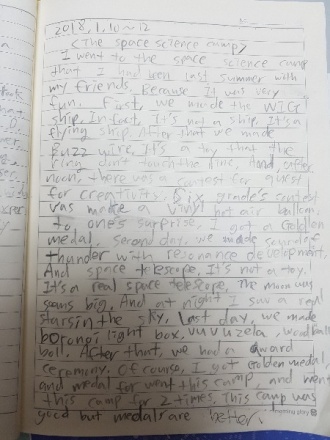 2018, 1, 10~12
<The space science camp>
I went to the space science camp
that I had been last summer with
my friends. Because It was very
fun. First, we made the WIG
ship. In fact, It's not a ship. It's a
flying ship. After that we made
buzz wire. It's a toy that the
ring don't touch the line. And after
noon, there was a contest for
for creativity. Six grade's contest
was make a vinyl hot air balloon.
to one's surprise, I got a Golden
medal. second day, we made sound of
thunder with resonance development,
And space telescope, It's not a toy.
It's a real space telescope. The moon was
seems big. And at night I saw a real
stars in the sky. Last day, we made
light box, vuvuzela,
ball. After that, we had a award
ceremony. Of course, I got Golden medal,
and medal for went this camp, and went
this camp for 2 times. This camp was
good but medals are better.